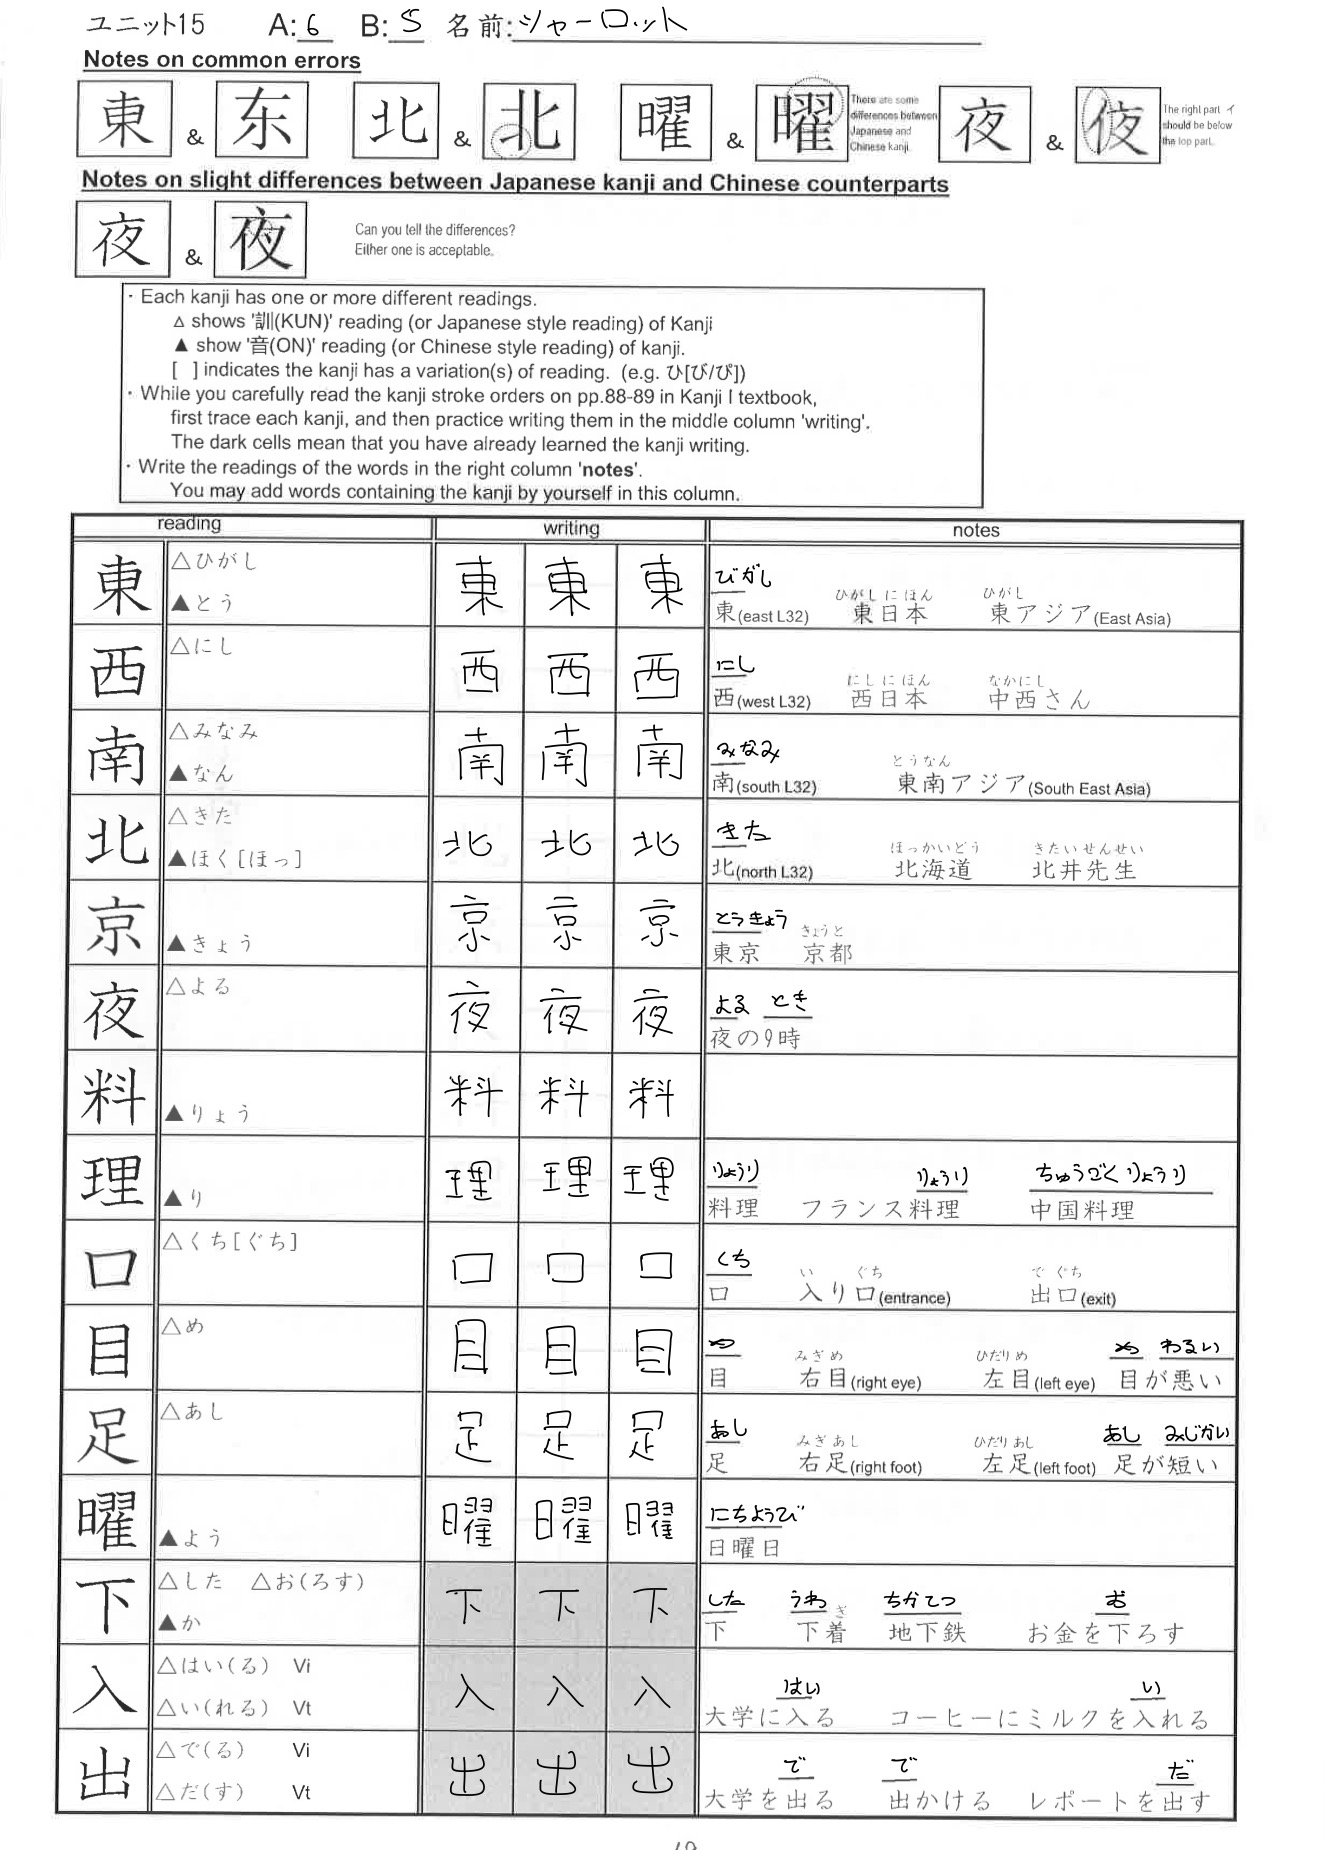 ユニット15 A: 6 B: 5 名前: シャーロット
Notes on common errors
東 & 东 北 & 北 曜 & 曜 There are some differences between Japanese and Chinese kanji. 夜 & The right part イ should be below the top part.
Notes on slight differences between Japanese kanji and Chinese counterparts
夜 & 夜 Can you tell the differences?
Either one is acceptable.
・Each kanji has one or more different readings.
△ shows '訓(KUN)' reading (or Japanese style reading) of Kanji
▲ show '音(ON)' reading (or Chinese style reading) of kanji.
[ ] indicates the kanji has a variation(s) of reading. (e.g. ひ[び/ぴ])
・While you carefully read the kanji stroke orders on pp.88-89 in Kanji I textbook,
first trace each kanji, and then practice writing them in the middle column 'writing'.
The dark cells mean that you have already learned the kanji writing.
・Write the readings of the words in the right column 'notes'.
You may add words containing the kanji by yourself in this column.
reading writing notes
東 △ひがし
▲とう
東 東 東
びがし ひがしにほん ひがし
東(east L32) 東日本 東アジア(East Asia)
西 △にし
西 西 西
にし にしにほん なかにし
西(west L32) 西日本 中西さん
南 △みなみ
▲なん
南 南 南
みなみ とうなん
南(south L32) 東南アジア(South East Asia)
北 △きた
▲ほく[ほっ]
北 北 北
きた ほっかいどう きたいせんせい
北(north L32) 北海道 北井先生
京 ▲きょう
京 京 京
とうきょう きょうと
東京 京都
夜 △よる
夜 夜 夜
よる とき
夜の9時
料 ▲りょう
料 料 料
理 ▲り
理 理 理
りょうり りょうり ちゅうごくりょうり
料理 フランス料理 中国料理
口 △くち[ぐち]
口 口 口
くち い ぐち で ぐち
口 入り口(entrance) 出口(exit)
目 △め
目 目 目
め みぎめ ひだりめ め わるい
目 右目(right eye) 左目(left eye) 目が悪い
足 △あし
足 足 足
あし みぎあし ひだりあし あし みじかい
足 右足(right foot) 左足(left foot) 足が短い
曜 ▲よう
曜 曜 曜
にちようび
日曜日
下 △した △お(ろす)
▲か
下 下 下
した うわ ぎ ちかてつ お
下 下着 地下鉄 お金を下ろす
入 △はい(る) Vi
△い(れる) Vt
入 入 入
はい い
大学に入る コーヒーにミルクを入れる
出 △で(る) Vi
△だ(す) Vt
出 出 出
で で だ
大学を出る 出かける レポートを出す